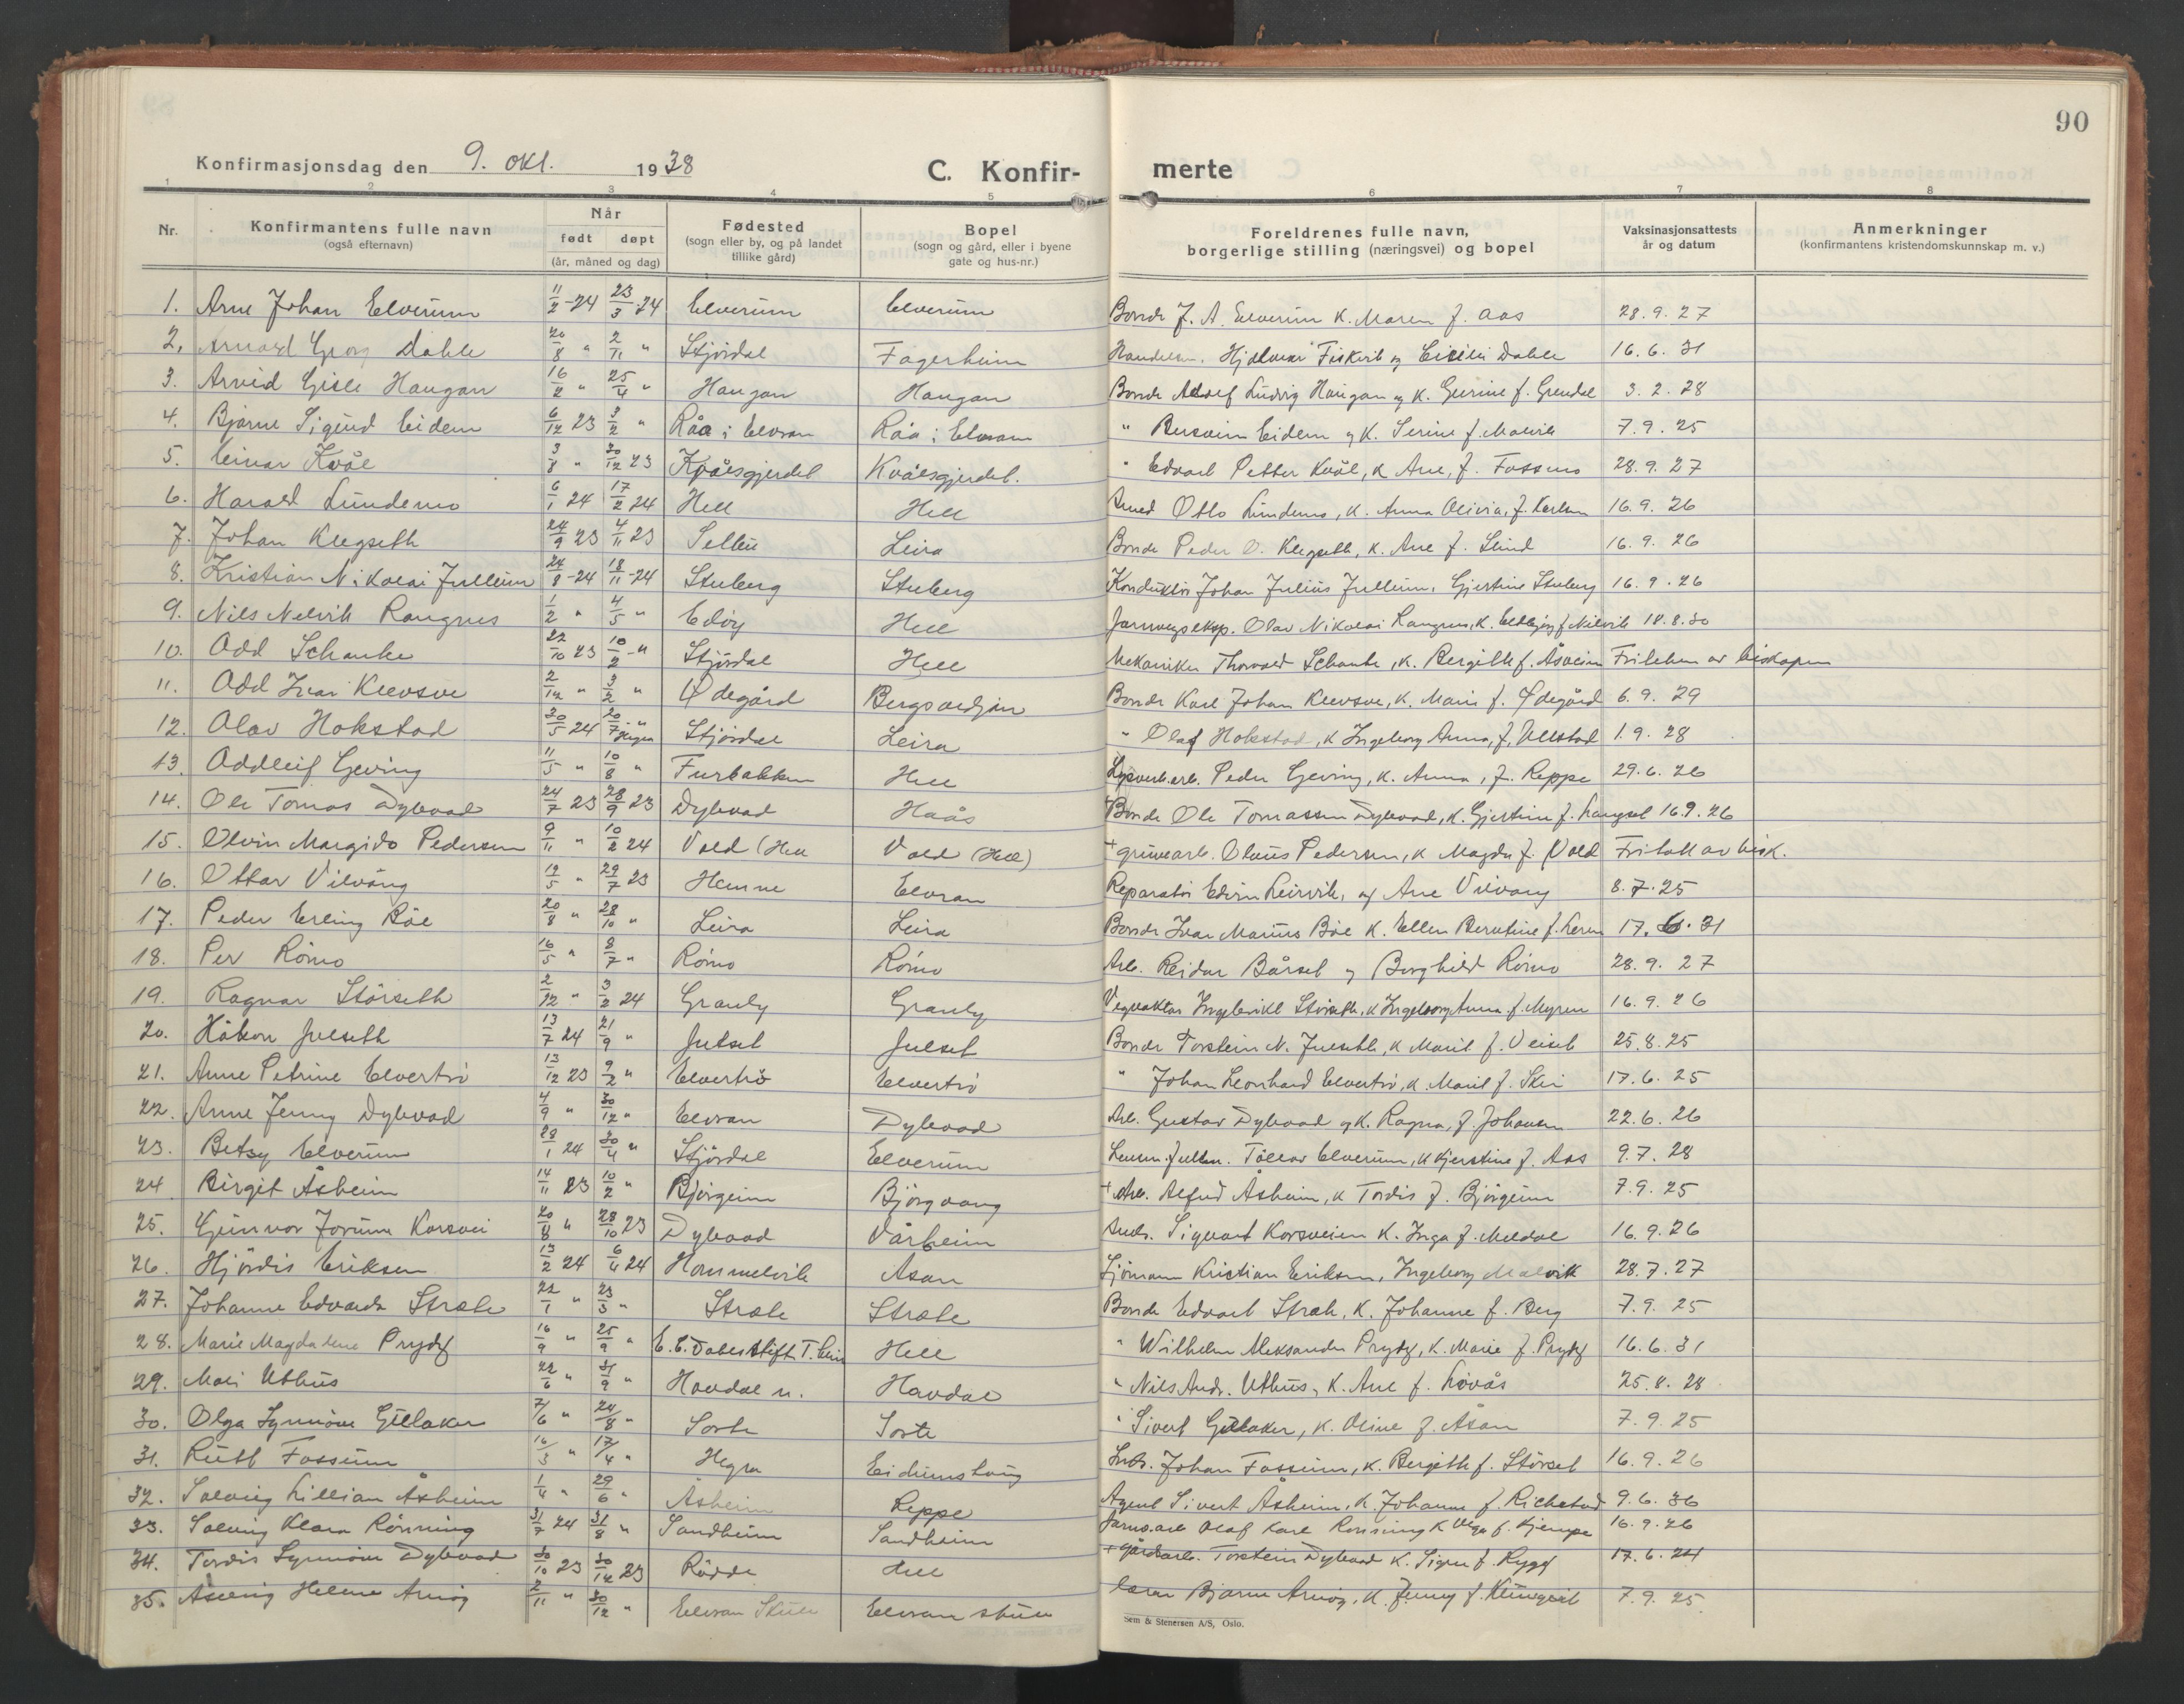 90
Konfirmasjonsdag den 9. okt. 1938
C. Konfir- merte
1 2 3 4 5 6 7 8
Nr. Konfirmantens fulle navn (også efternavn) Når født døpt (år, måned og dag) Fødested (sogn eller by, og på landet tillike gård) Bopel (sogn og gård, eller i byene gate og hus-nr.) Foreldrenes fulle navn, borgerlige stilling (næringsvei) og bopel Vaksinasjonsattests år og datum Anmerkninger (konfirmantens kristendomskunnskap m. v.)
1. Arne Johan Elverum 11/2-24 23/3-24 Elverum Elverum Bonde J. A. Elverum K. Maren f. Aas 28.9.27
2. Arnold Georg Dahle 20/8 " 2/11 " Stjørdal Fagerheim Hjalmar Fiskvik og Dahle 16.6.31
3. Arvid Gisle Haugan 16/2 " 25/4 " Haugan Haugan Bonde Ludvig Haugan og K. Gurine f. Grendal 3.2.28
4. Bjarne Sigurd Eidem 6/12 23 3/2 " Råa i Elvran Råa i Elvran " Eidem og K. Serine f. Malvik 7.9.25
5. Einar Kvål 3/8 " 30/12 23 Kvålsgjerdet Kvålsgjerdet. " Edvart Petter Kvål, K. Ane, f. Fossmo 28.9.27
6. Harald Lundemo 6/1 24 17/2 24 Hell Hell Otto Lundemo, K. Anna Olivia, f. Karlsen 16.9.26
7. Johan Klegseth 24/9 23 4/11 23 Leira Bonde Peder O. Klegseth, K. Ane f. 16.9.26
8. Kristian Nikolai Jullum 24/8-24 18/11-24 Stuberg Stuberg Konduktør Johan Julius Jullum, Gjertine Stuberg 16.9.26
9. Nils Nelvik Rangnes 1/2 " 4/5 " Edøy Hell Jarnvegseksp. Olav Nikolai Rangnes, K. f. Nelvik 18.8.30
10. Odd Schanke 22/10 23 10/2 -" Stjørdal Hell Mekaniker Thorvald Schanke, K. Bergithe f. Åsheim Fritaken av biskopen
11. Odd Ivar Klevsve 2/12 " 3/2 " Ødegård Bonde Karl Johan Klevsve, K. Marie f. Ødegård 6.9.29
12. Olav Hokstad 30/5 24 20/7 " Stjørdal Leira " Olaf Hokstad, K Ingeborg Anna, f. Ullstad 1.9.28
13. Oddleif Geving 11/5 " 10/8 " Furbakken Hell Peder Geving, K. Anna, f. Reppe 29.6.26
14. Ole Tomas Dybvad 24/7 23 28/9 23 Dybvad Haås Bonde Ole Tomassen Dybvad, K. Gjertine f. 16.9.26
15. Olvin Margido Pedersen 9/11 " 10/2 24 Vold (Hell Vold (Hell) + gruvearb. Olaus Pedersen, K Magda f. Vold Fritatt av bisk.
16. Ottar Vilvang 19/5 " 29/7 23 Hemne Elvran Reparatør Edvin Leirvik, og Ane Vilvang 8.7.25
17. Peder Erling Bøe 20/8 " 28/10 " Leira Leira Bonde Ivar Marius Bøe K. Ellen Berntine f. 17.6.31
18. Per Rømo 16/5 " 8/7 " Rømo Rømo Arb. Reidar Bårset og Borghild Rømo 28.9.27
19. Ragnar Størseth 2/12 " 3/2 24 Granly Granly Vegvakter Ingebrikt Størseth, K Ingeborg Anna f. Myren 16.9.26
20. Håkon Julseth 13/7 24 21/9 " Julset Julset Bonde Torstein N. Julseth, K Marit f. Veiset 25.8.25
21. Anne Petrine Elvertrø 13/12 23 9/2 " Elvertrø Elvertrø " Johan Leonhard Elvertrø, K. Marit f. Skei 17.6.25
22. Anne Jenny Dybvad 4/9 " 30/12 " Elvran Dybvad Arb. Gustav Dybvad og K. Ragna, f. Johansen 22.6.26
23. Betsy Elverum 28/1 24 30/4 " Stjørdal Elverum Tollav Elverum, K Kjerstine f. Aas 9.7.28
24 Birgit Åsheim 14/11 23 10/2 " Bjørgeim Bjørgvang + Arb. Alfred Åsheim, K Tordis f. Bjørgeim 7.9.25
25. Gunnvor Jorunn Korsvei 20/8 " 28/10 23 Dybvad Vårheim Sigvart Korsveien K. Inga f. Meldal 16.9.26
26. Hjørdis Eriksen 13/2 24 6/4 24 Hommelvik Åsan Sjømann Kristian Eriksen, Ingeborg Malvik 28.7.27
27. Johanne Edvarda Stråle 22/1 " 23/3 " Stråle Stråle Bonde Edvart Stråle, K. Johanne f. Berg 7.9.25
28. Marie Magdalene Prydz 16/9 " 25/9 " E. C. Dahls stift. T.heim Hell " Wilhelm Aleksander Prydz, K. Marie f. Prydz 16.6.31
29. Mari Uthus 22/6 " 31/9 " Havdal n. Havdal " Nils Andr. Uthus, K. Ane f. Løvås 25.8.28
30. Olga Synnøve Gullaker 7/6 " 24/8 " Sorte Sorte " Sivert Gullaker, K. Oline f. Åsan 7.9.25
31. Ruth Fossum 16/3 " 17/4 " Hegra Eidumshaug Johan Fossum, K. Bergithe f. Størset 16.9.26
32. Solveig Lillian Åsheim 1/4 " 29/6 " Åsheim Reppe Agent Sivert Åsheim, K. Johanne f. Richstad 9.6.36
33. Solveig Klara Rønning 31/7 24 31/8 " Sandheim Sandheim Jarnv.arb Olaf Karl Rønning K Olga f. Kjempe 16.9.26
34. Tordis Synnøve Dybvad 30/10 23 30/12 23 Rødde Hell + gårdsarb. Torstein Dybvad K. Signe f. Rygg 17.6.24
35. Aslaug Helene Arnøy 2/11 " 30/12 " Elvran Skule Elvran skule Lærer Bjarne Arnøy, K. Jenny f. 7.9.25
Sem & Stenersen A/S, Oslo.